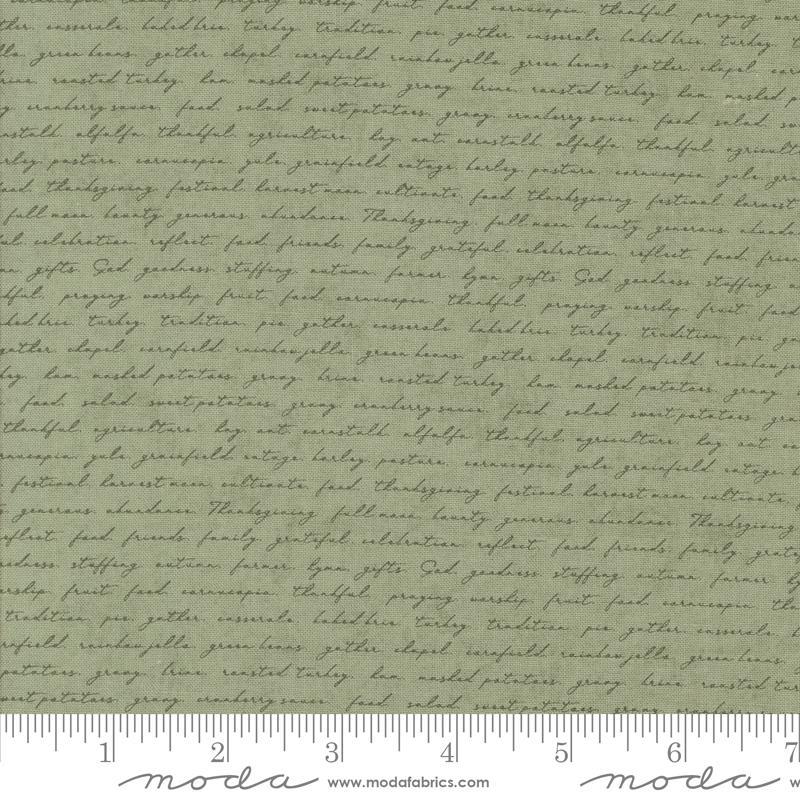 cornucopia, thankful, praying worship fruit, food, cornucopia, thankful, praying
casserole, baked brie, turkey, tradition, pie, gather, casserole, baked brie, turkey,
green beans, gather, chapel, cornfield, rainbow jello, green beans, gather, chapel,
brine, roasted turkey, ham, mashed potatoes, gravy, brine, roasted turkey, ham, mashed
cranberry sauce, food, salad, sweet potatoes, gravy, cranberry sauce, food, salad,
alfalfa, thankful, agriculture, hay, oat, cornstalk, alfalfa, thankful,
pasture, cornucopia, yule, grainfield, barley, pasture, cornucopia, yule,
food, thanksgiving, festival, harvest moon, cultivate, food, thanksgiving, festival, harvest
full moon, bounty, generous, abundance, Thanksgiving, full moon, bounty, generous,
celebration, reflect, food, friends, family, grateful, celebration, reflect, food,
gifts, God, goodness, stuffing, autumn, farmer, hymn, gifts, God, goodness, stuffing
praying worship fruit food, cornucopia, thankful, praying, worship, fruit food
turkey, tradition, pie, gather, casserole, baked brie, turkey, tradition, pie,
gather, chapel, cornfield, rainbow jello, green beans, gather, chapel, cornfield,
ham, mashed potatoes, gravy, brine, roasted turkey, ham, mashed potatoes, gravy
food, salad, sweet potatoes, gravy, cranberry sauce, food, salad, sweet potatoes,
thankful, agriculture, hay, oat, cornstalk, alfalfa, thankful, agriculture, hay, oat
yule, grainfield, barley, pasture, cornucopia, yule, grainfield
festival, harvest moon, cultivate, food, thanksgiving, festival, harvest moon, cultivate,
generous, abundance, Thanksgiving, full moon, bounty, generous, abundance, Thanksgiving
reflect, food, friends, family, grateful, celebration, reflect, food, friends, family,
stuffing, autumn, farmer, hymn, gifts, God, goodness, stuffing, autumn, farmer
fruit, food, cornucopia, thankful, praying worship fruit, food, cornucopia
tradition, pie, gather, casserole, baked brie, turkey, tradition, pie, gather, casserole,
rainbow jello, green beans, gather, chapel, cornfield, rainbow jello, green beans,
potatoes, gravy, brine, roasted turkey, ham, mashed potatoes, gravy, brine, roasted
sweet potatoes, gravy, cranberry sauce, food, salad, sweet potatoes, gravy
1 2 3 4 5 6 7
moda www.modafabrics.com moda